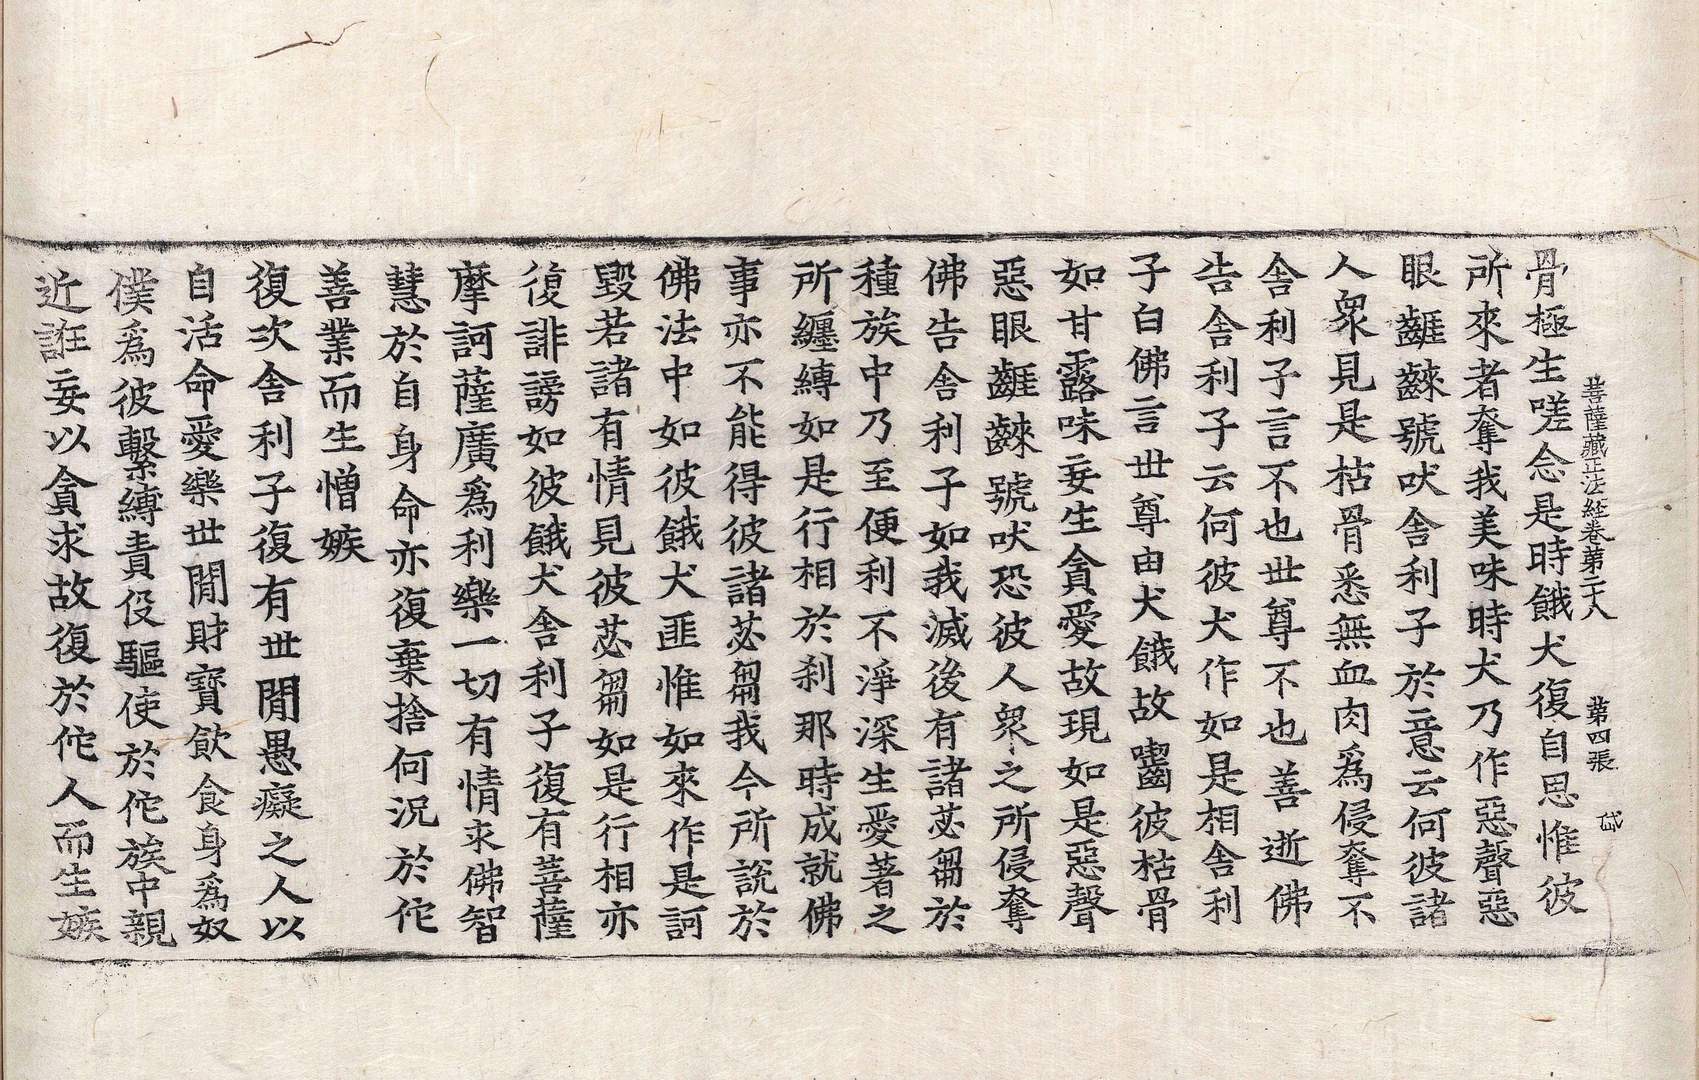 菩薩藏正法経卷第二十八 第四張 岱
骨極生嗟念是時餓犬復自思惟彼
所來者奪我美味時犬乃作惡聲惡
眼齜齼號吠舍利子於意云何彼諸
人衆見是枯骨悉無血肉爲侵奪不
舍利子言不也世尊不也善逝佛
告舍利子云何彼犬作如是相舍利
子白佛言世尊由犬餓故齧彼枯骨
如甘露味妄生貪愛故現如是惡聲
惡眼齜齼號吠恐彼人衆之所侵奪
佛告舍利子如我滅後有諸苾芻於
種族中乃至便利不淨深生愛著之
所纏縛如是行相於刹那時成就佛
事亦不能得彼諸苾芻我今所說於
佛法中如彼餓犬匪惟如來作是訶
毀若諸有情見彼苾芻如是行相亦
復誹謗如彼餓犬舍利子復有菩薩
摩訶薩廣爲利樂一切有情求佛智
慧於自身命亦復棄捨何況於佗
善業而生憎嫉
復次舍利子復有世閒愚癡之人以
自活命愛樂世閒財寶飲食身爲奴
僕爲彼繫縛責役驅使於佗族中親
近誑妄以貪求故復於佗人而生嫉